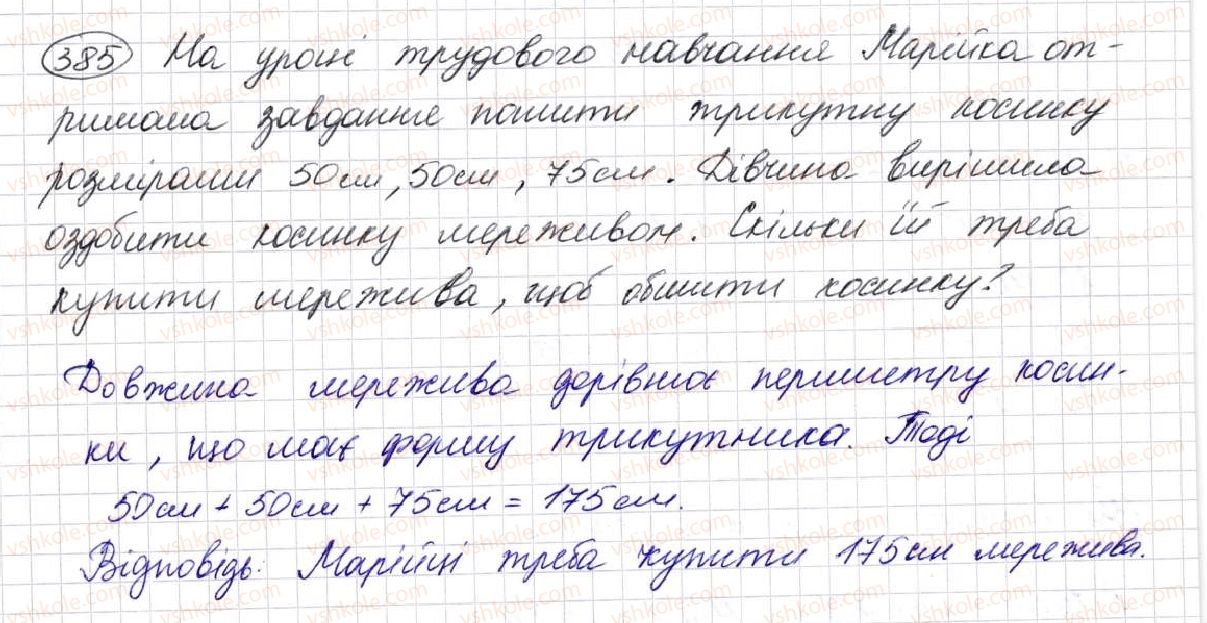 385 На уроці трудового навчання Марійка от-
римала завдання пошити трикутну косинку
розмірами 50см, 50см, 75см. Дівчина вирішила
оздобити косинку мереживом. Скільки їй треба
купити мережива, щоб обшити косинку?
Довжина мережива дорівнює периметру косин-
ки, що має форму трикутника. Тоді
50см + 50см + 75см = 175см.
Відповідь: Марійці треба купити 175см мережива.